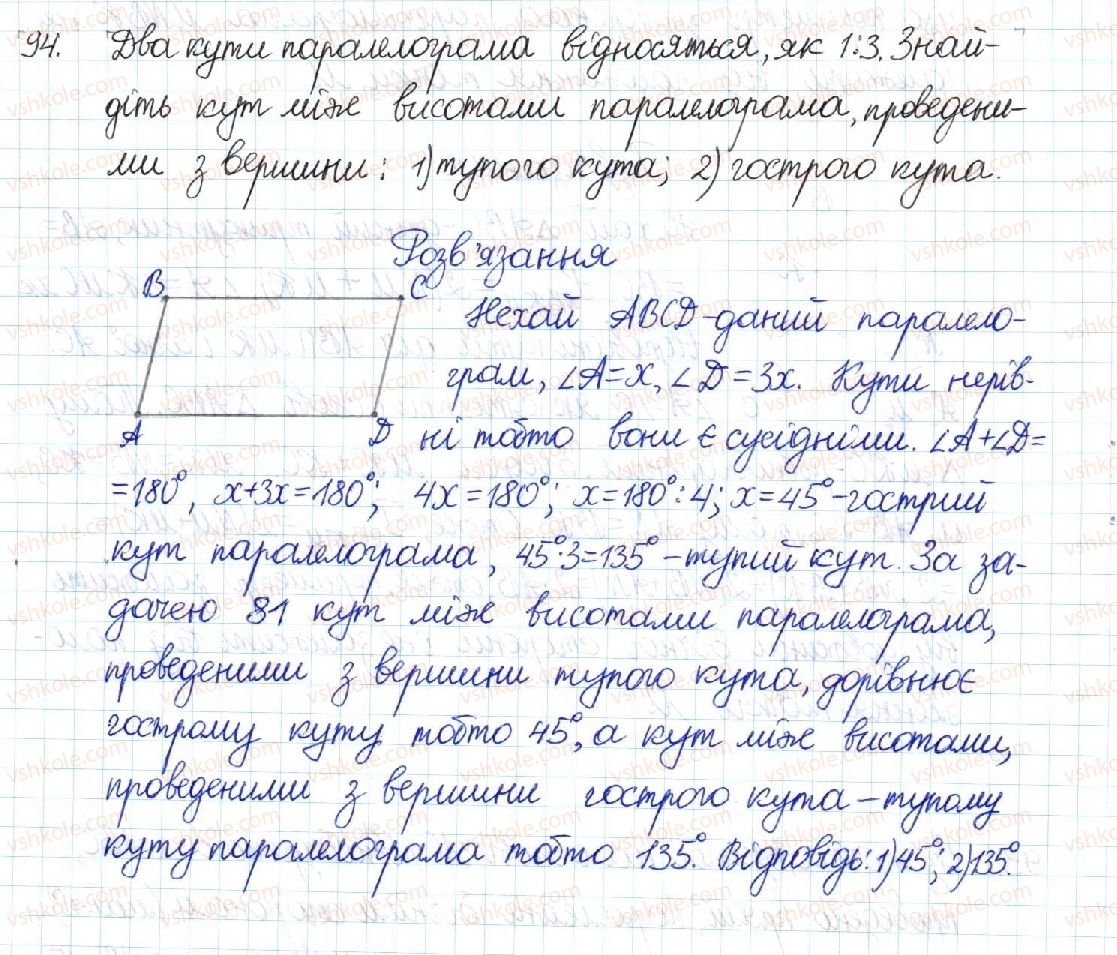 94. Два кути паралелограма відносяться, як 1:3. Знай-
діть кут між висотами паралелограма, проведени-
ми з вершини: 1) тупого кута; 2) гострого кута.
Розв'язання
B C
Нехай ABCD - даний паралело-
грам, ∠A=x, ∠D=3x. Кути нерів-
A D
ні тобто вони є сусідніми. ∠A+∠D=
=180°, x+3x=180°; 4x=180°; x=180°:4; x=45° - гострий
кут паралелограма, 45°·3=135° - тупий кут. За за-
дачею 81 кут між висотами паралелограма,
проведеними з вершини тупого кута, дорівнює
гострому куту тобто 45°, а кут між висотами,
проведеними з вершини гострого кута - тупому
куту паралелограма тобто 135°. Відповідь: 1) 45°; 2) 135°.